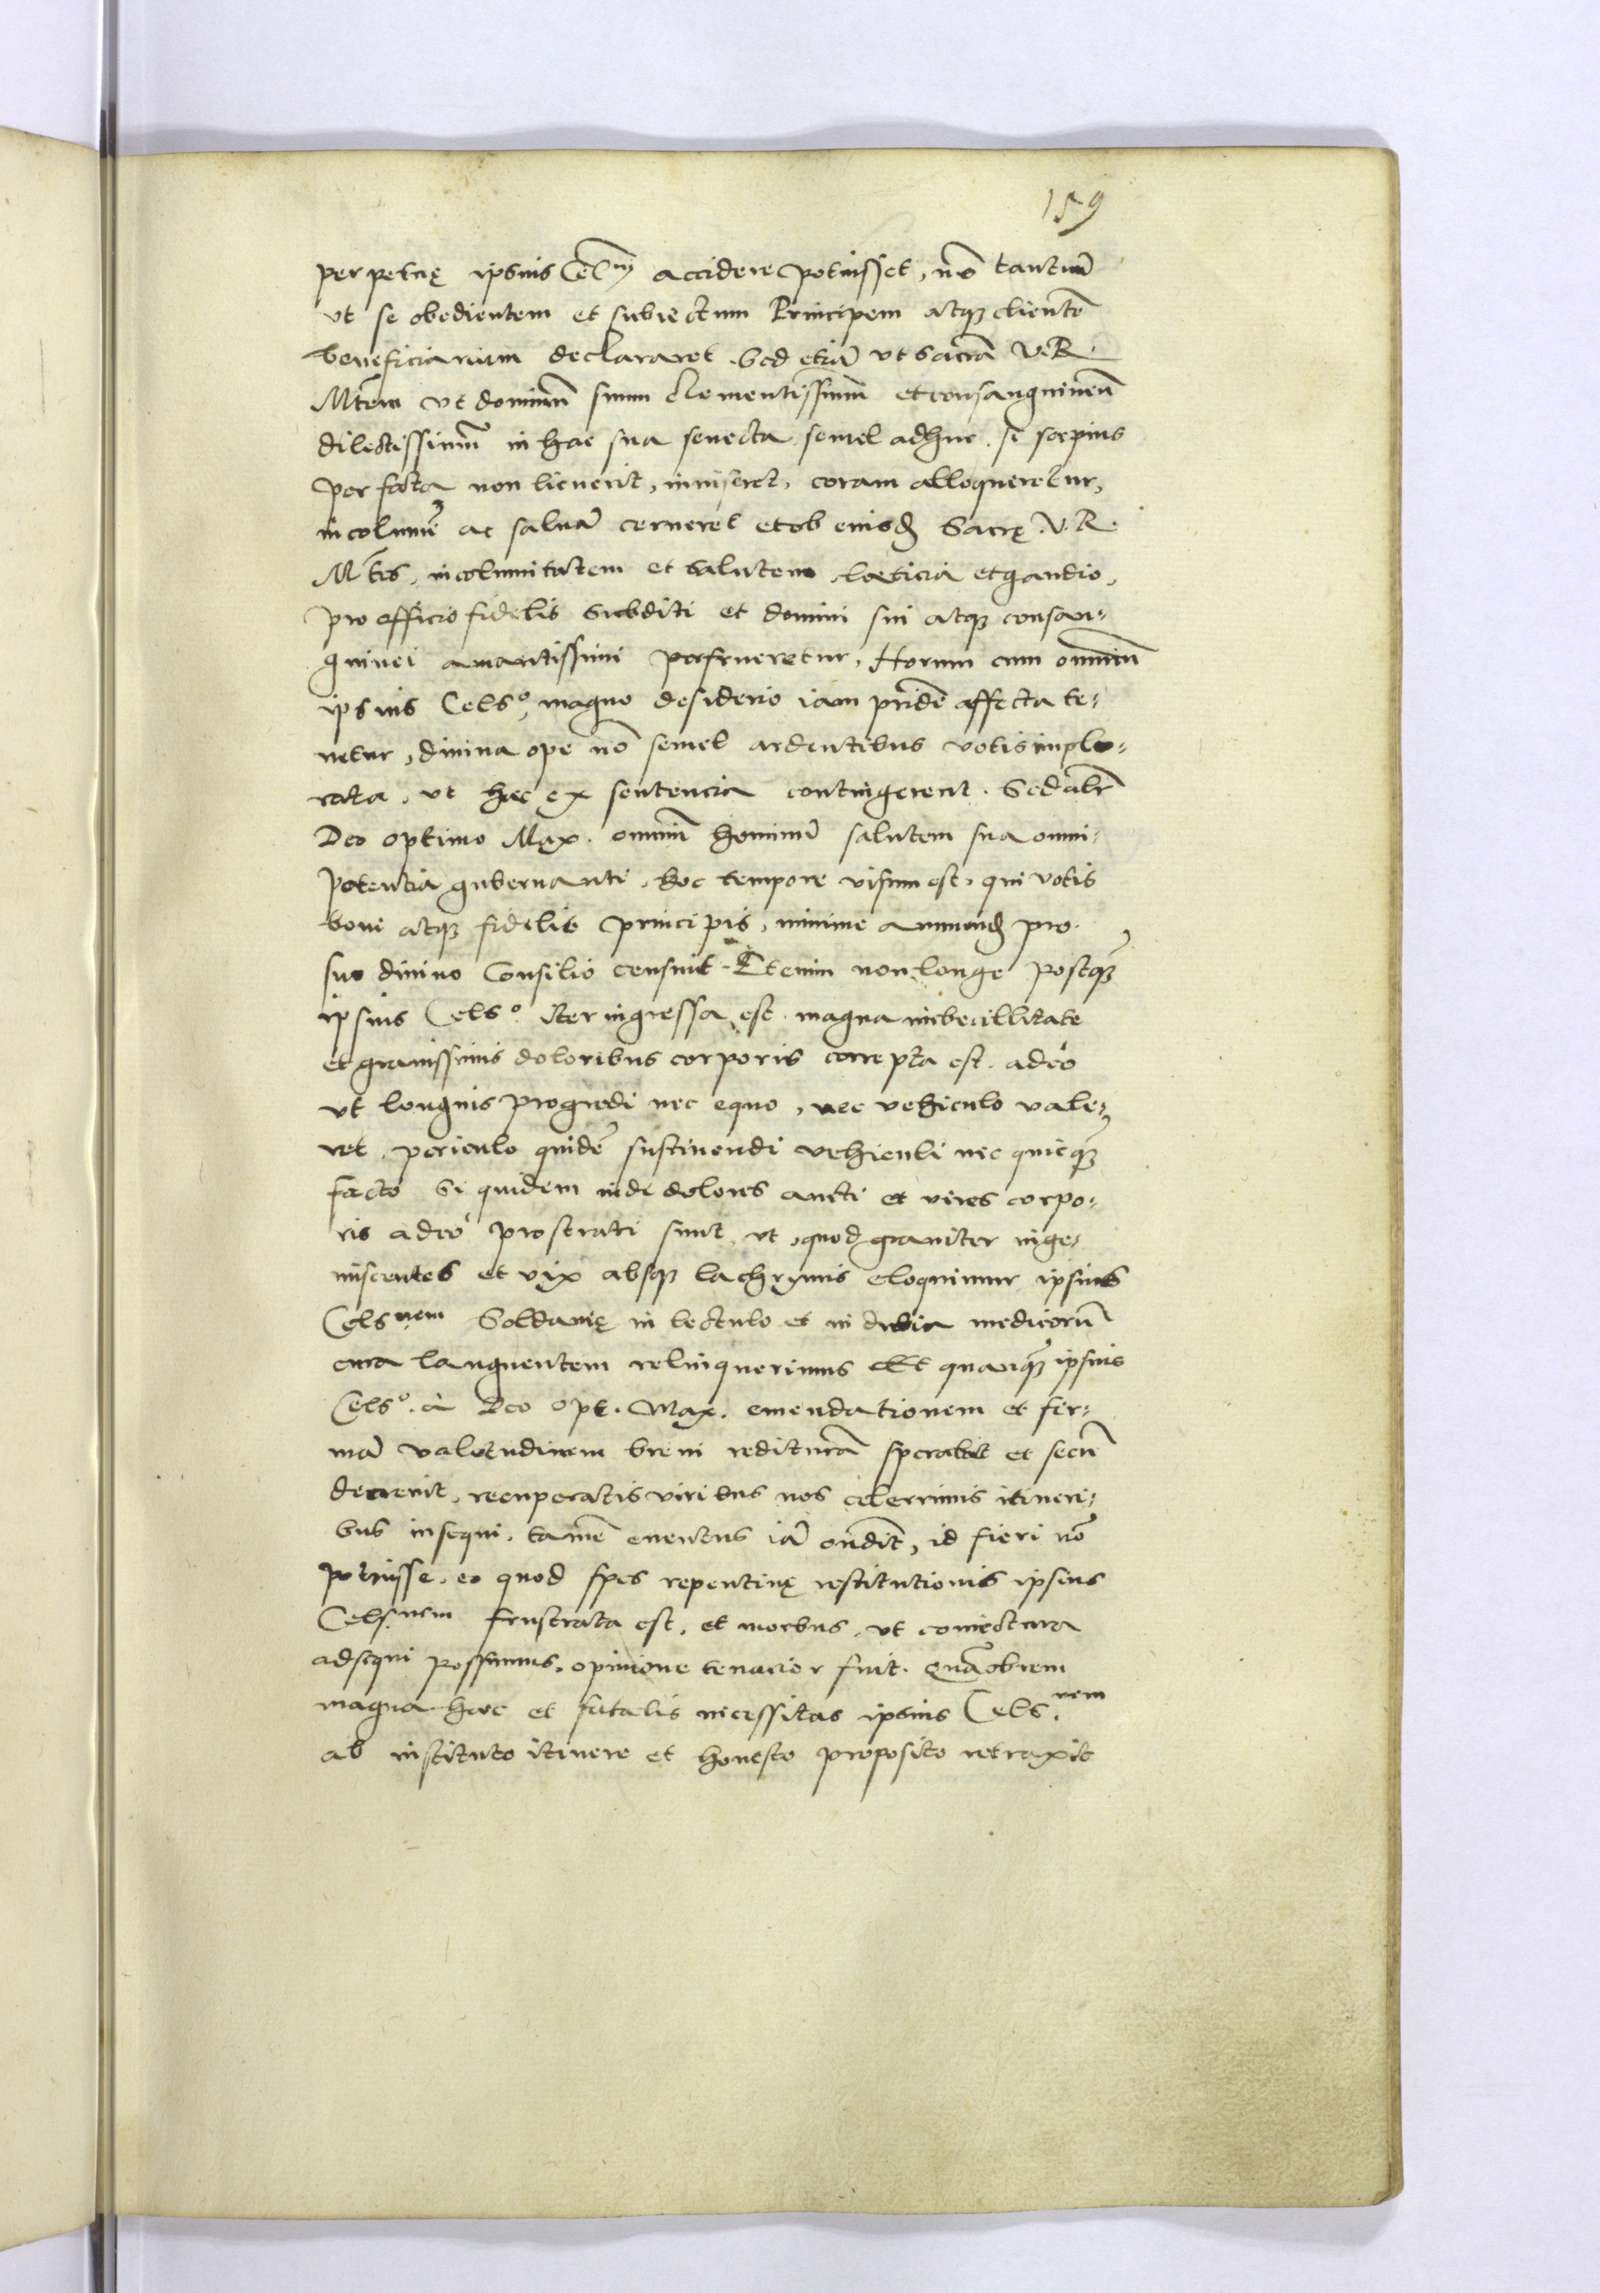 159
perpetuę ipsius Cels:nj accidere potuisset, nõ tantum̃
vt se obedientem et subiectum Principem atq₃ clientẽ
beneficiarium declararet. Sed etiã vt sacrã V. R.
Mtem̃ vt dominũ suum clementissimũ et consanguineũ
dilectissimũ in hac sua senecta semel adhuc, se sæpius
per fata non licuerit, inuiseret, coram alloqueretur,
incolumẽ ac saluã cerneret et ob eiusd Sacrę V. R.
Mtis, incolumitatem et salutem læticia et gaudio,
pro officio fidelis subditi et domini sui atq₃ consan-
guinei amantissimi perfrueretur, Horum cum omniũ
ipsius Cels:o magno desiderio iam pridẽ affecta te-
netur, diuina ope nõ semel ardentibus votis implo-
rata, vt hæc ex sentencia contingerent. Sed alr̃
Deo optimo Max. omniũ hominũ salutem sua omni-
potentia gubernanti, hoc tempore visum est, qui votis
boni atq₃ fidelis principis, minime annuend pro
suo diuino Consilio censuit. Etenim non longe postq₃̃
ipsius Cels:o iter ingressa est, magna imbecillitate
et grauissimis doloribus corporis correpta est. adeò
vt longius progredi nec equo, nec vehiculo vale-
ret, periculo quidẽ sustinendi vehiculi nec quicq₃̃
facto Si quidem inde dolores aucti et vires corpo-
ris adeò prostrati sunt, vt, quod grauiter inge-
miscentes et vix absq₃ lachrymis eloquimur ipsius
Cels:nem Soldauię in lectulo et in dubia medicorũ
cura languentem relinquerimus Et quanq₃̃ ipsius
Cels:o à Deo Opt. Max. emendationem et fir-
mã valetudinem breui rediturã sperabit et secũ
decreuit, recuperatis viribus nos celerrimis itineri-
bus insequi, tamẽ euentus iã ondit, id fieri nõ
potuisse, eo quod spes repentinę restitutionis ipsius
Cels:nem frustrata est, et morbus, vt coniectura
adsequi possumus, opinione tenacior fuit. Quãobrem
magna hæc et fatalis necessitas ipsius Cels:nem
ab instituto itinere et honesto proposito retraxit